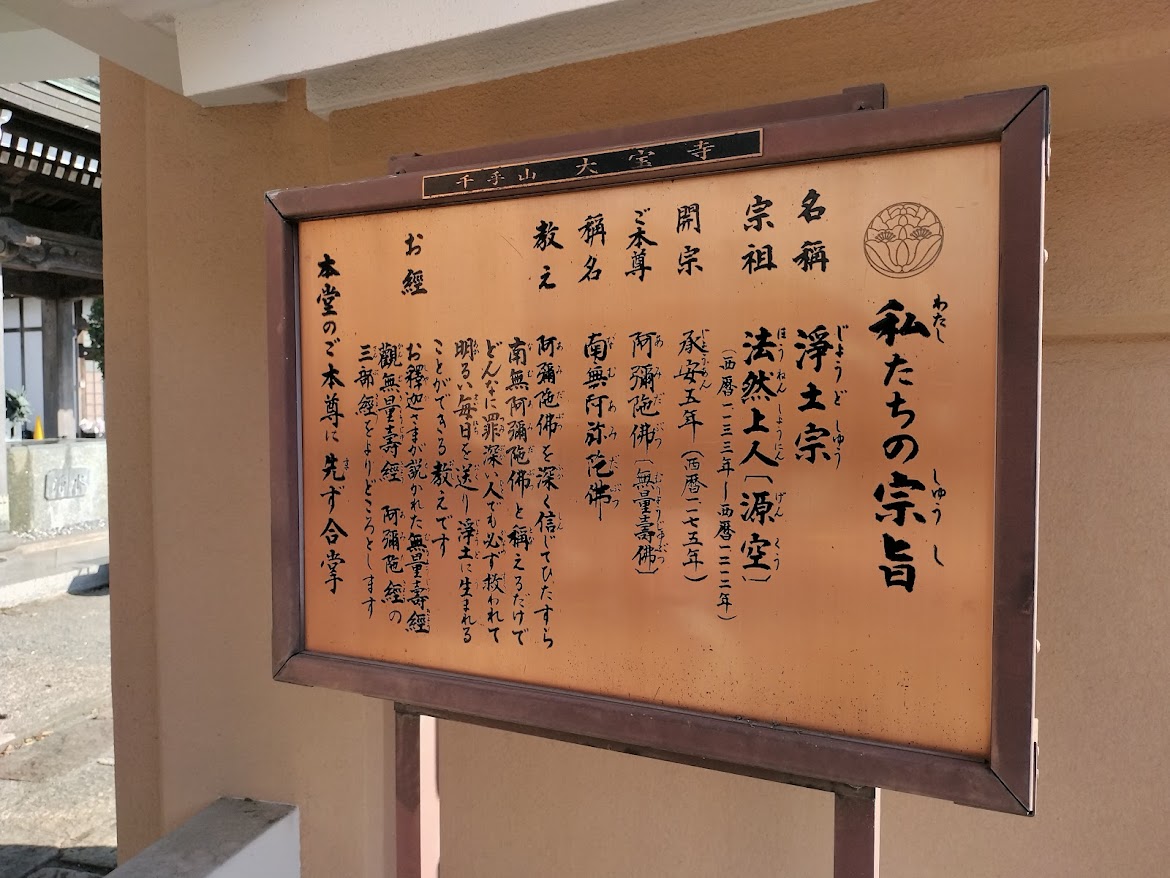 千手山 大宝寺
私たちの宗旨
名稱 淨土宗
宗祖 法然上人〔源空〕
(西暦一一三三年ー西暦一二一二年)
開宗 承安五年(西暦一一七五年)
ご本尊 阿彌陀佛〔無量壽佛〕
稱名 南無阿弥陀佛
教え 阿彌陀佛を深く信じてひたすら
南無阿彌陀佛と稱えるだけで
どんなに罪深い人でも必ず救われて
明るい毎日を送り淨土に生まれる
ことができる教えです
お經 お釋迦さまが説かれた無量壽經
觀無量壽經 阿彌陀經の
三部經をよりどころとします
本堂のご本尊に先ず合掌